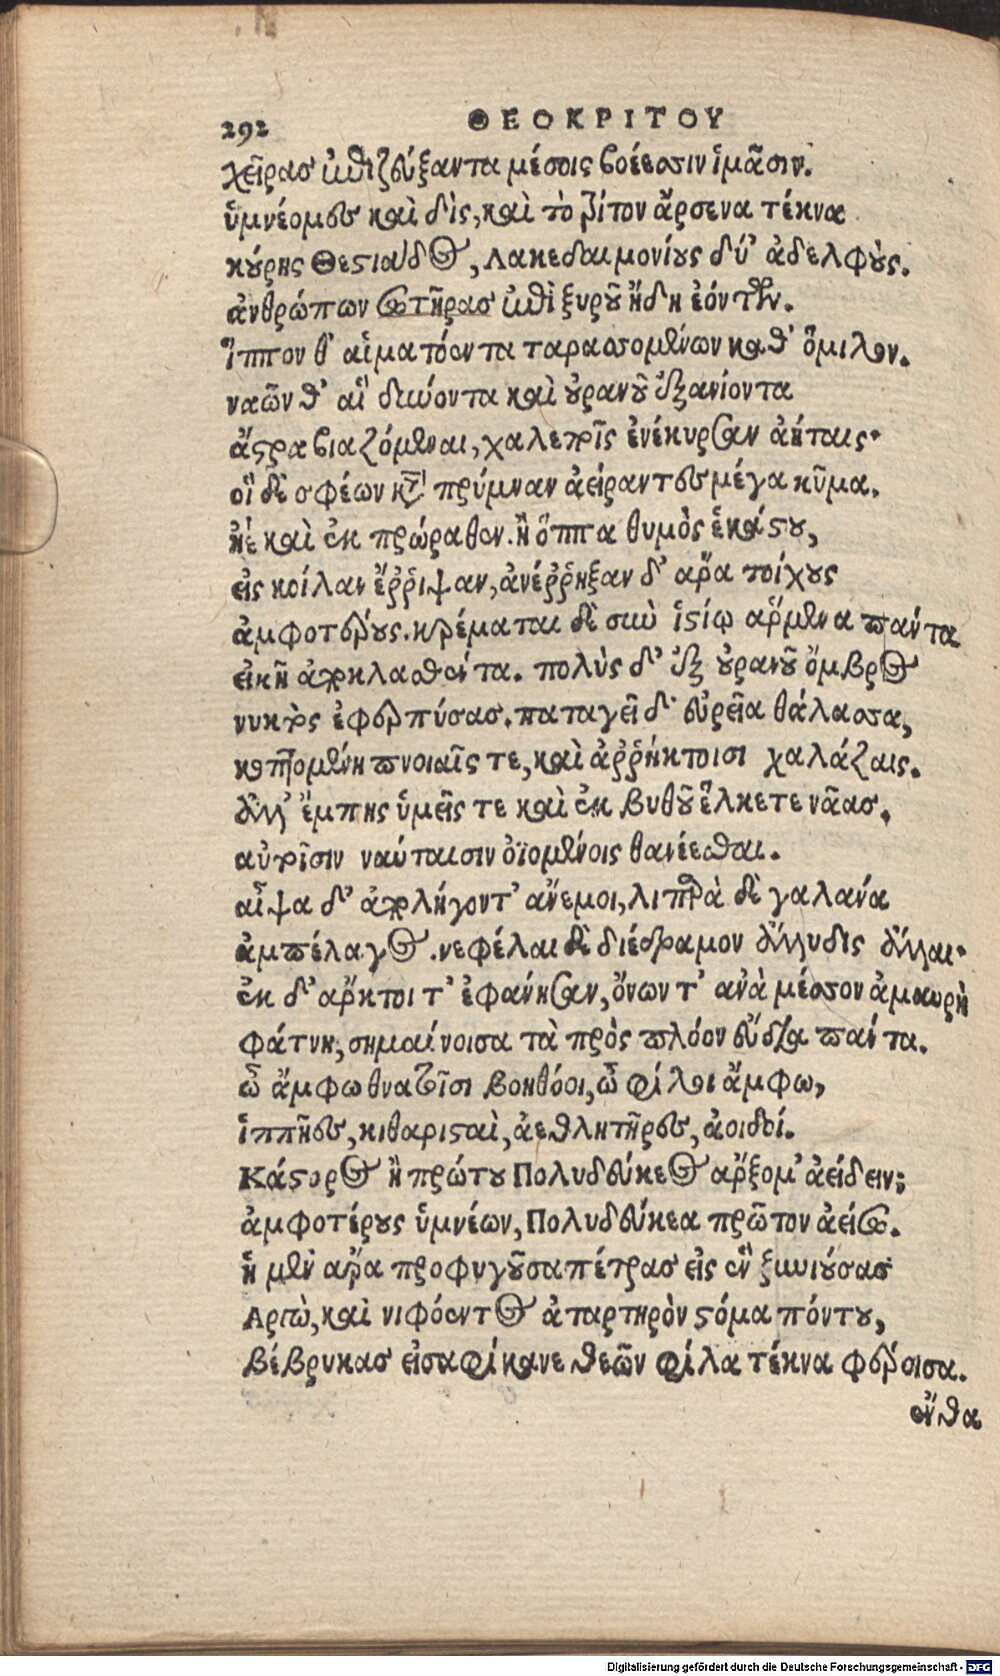 292 ΘΕΟΚΡΙΤΟΥ
χεῖρας ἐπιζεύξαντα μέσοις βοέεσσιν ἱμᾶσιν.
ὑμνέομες καὶ δὶς, καὶ τὸ τρίτον ἄρσενα τέκνα
κούρης Θεστιάδος, Λακεδαιμονίους δύ' ἀδελφοὺς.
ἀνθρώπων σωτῆρας ἐπὶ ξυροῦ ἤδη ἐόντων.
ἵππον θ' αἱματόεντα ταρασσομένων καθ' ὅμιλον.
ναῶν θ' αἳ δύοντα καὶ οὐρανοῦ ἐξανίοντα
ἄστρα βιαζόμεναι, χαλεποῖς ἐνέκυρσαν ἀήταις·
οἳ δὲ σφέων κατὰ πρύμναν ἀείραντες μέγα κῦμα.
ἠὲ καὶ ἐκ πρώραθεν. ἢ ὅππα θυμὸς ἑκάστου,
εἰς κοίλαν ἔῤῥιψαν, ἀνέῤῥηξαν δ' ἄρα τοίχους
ἀμφοτέρους. κρέμαται δὲ σὺν ἱστίῳ ἄρμενα πάντα
εἰκῆ ἀποκλασθέντα. πολὺς δ' ἐξ οὐρανοῦ ὄμβρος
νυκτὸς ἐφερπύσας. παταγεῖ δ' εὐρεῖα θάλασσα,
κοπτομένη πνοιαῖς τε, καὶ ἀῤῥήκτοισι χαλάζαις.
ἀλλ' ἔμπης ὑμεῖς τε καὶ ἐκ βυθοῦ ἕλκετε νᾶας.
αὐτοῖσιν ναύταισιν ὀϊομένοις θανέεσθαι.
αἶψα δ' ἀπολήγοντ' ἄνεμοι, λιπαρὰ δὲ γαλάνα
ἀμπέλαγος. νεφέλαι δὲ διέδραμον ἄλλυδις ἄλλαι·
ἐκ δ' ἄρκτοι τ' ἐφάνησαν, ὄνων τ' ἀνὰ μέσσον ἀμαυρὴ
φάτνη, σημαίνοισα τὰ πρὸς πλόον εὔδια πάντα.
ὦ ἄμφω θνατοῖσι βοηθόοι, ὦ φίλοι ἄμφω,
ἱππῆες, κιθαρισταὶ, ἀεθλητῆρες, ἀοιδοί.
Κάστορος ἢ πρώτου Πολυδεύκεος ἄρξομ' ἀείδειν;
ἀμφοτέρους ὑμνέων, Πολυδεύκεα πρῶτον ἀείσω.
ἡ μὲν ἄρα προφυγοῦσα πέτρας εἰς ἓν ξυνιούσας
Αργὼ, καὶ νιφόεντος ἀταρτηρὸν στόμα πόντου,
Βέβρυκας εἰσαφίκανε θεῶν φίλα τέκνα φέροισα.
ἔνθα
Digitalisierung gefördert durch die Deutsche Forschungsgemeinschaft - DFG